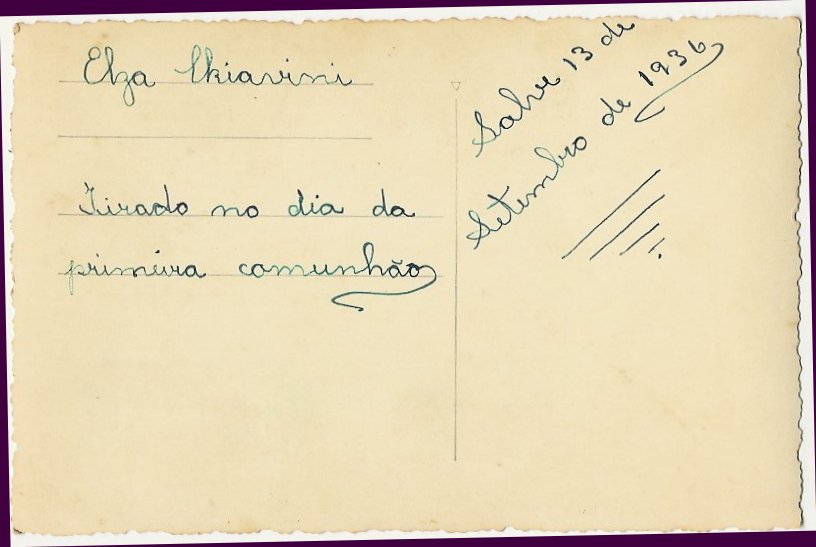 Elza Skiavini
Tirado no dia da
primeira comunhão
Salve 13 de
Setembro de 1936